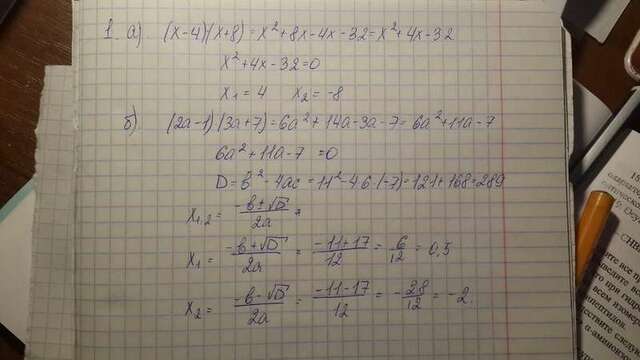 1. а) (x-4)(x+8) = x²+8x-4x-32 = x²+4x-32
x²+4x-32=0
x₁ = 4 x₂ = -8
б) (2a-1)(3a+7) = 6a²+14a-3a-7 = 6a²+11a-7
6a²+11a-7 =0
D = b²-4ac = 11²-4·6·(-7) = 121+168=289
x₁,₂ = (-b±√D)/2a =
x₁ = (-b+√D)/2a = (-11+17)/12 = 6/12 = 0,5
x₂ = (-b-√D)/2a = (-11-17)/12 = -28/12 = -2